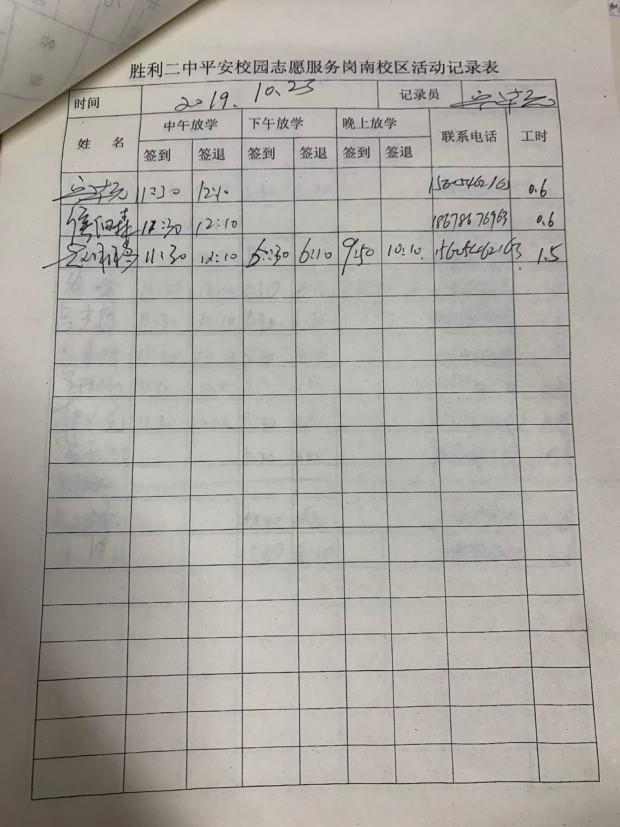 胜利二中平安校园志愿服务岗南校区活动记录表
时间 2019.10.25 记录员
姓名 中午放学 下午放学 晚上放学 联系电话 工时
签到 签退 签到 签退 签到 签退
11:30 12:10 0.6
12:30 12:10 18678676963 0.6
11:30 12:10 5:30 6:10 9:50 10:10 15605462163 1.5